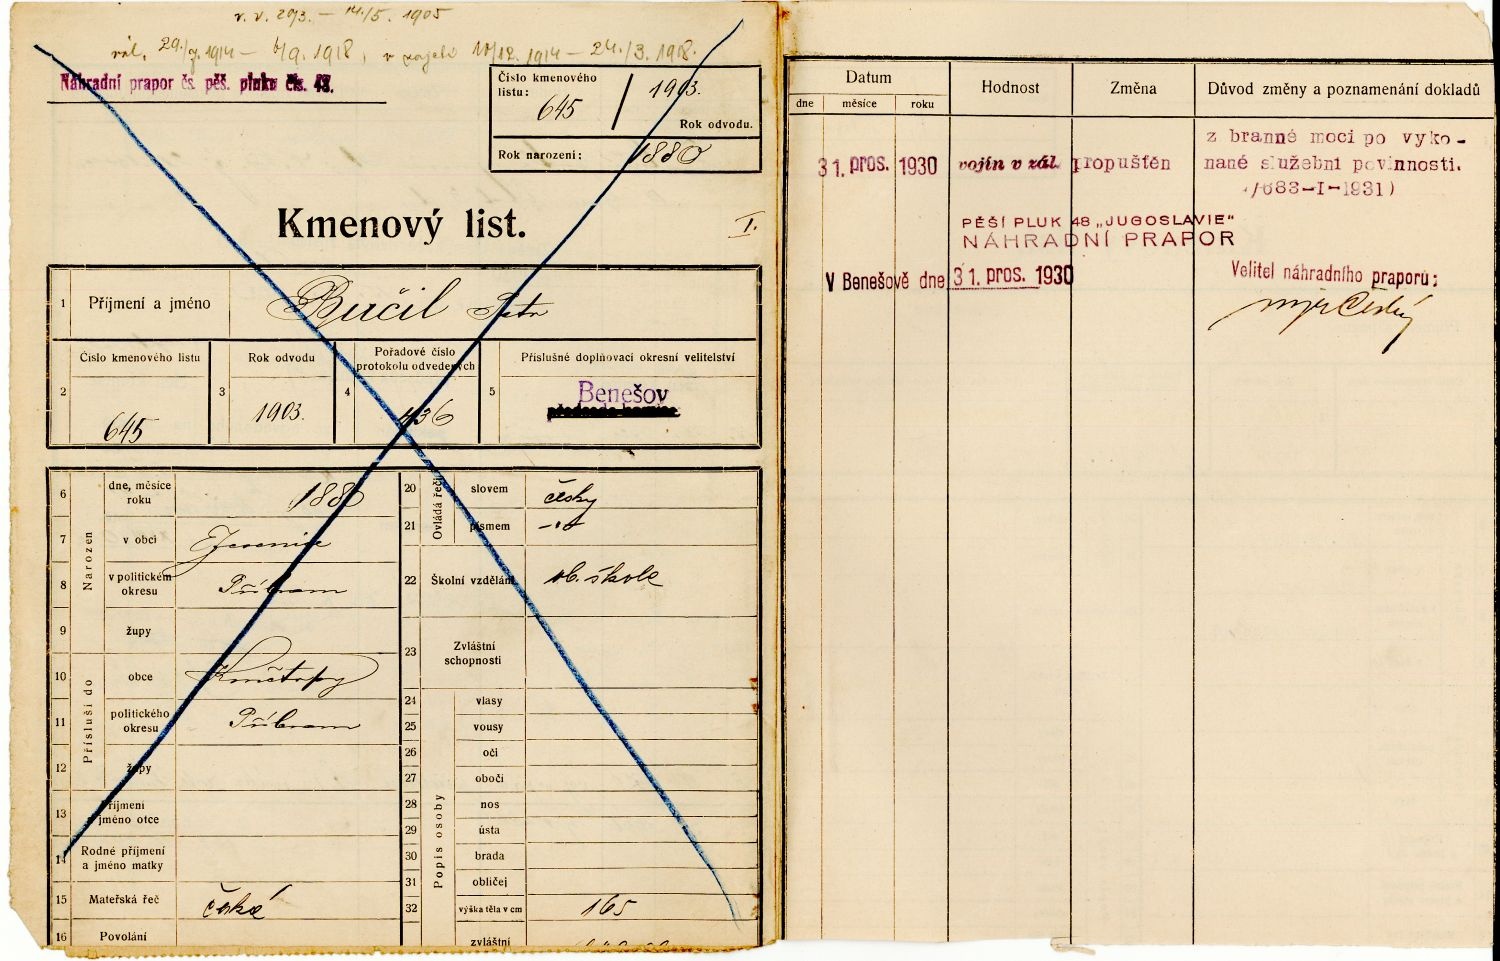 14./5. 1905
29./7. 1914 – 6/9. 1918, v zajetí 10/12. 1914 – 24./3. 1918.
Náhradní prapor čs. pěš. pluku čís. 48.
Číslo kmenového listu:
645
1903.
Rok odvodu.
Rok narození:
1880
Kmenový list.
I.
1
Příjmení a jméno
Bučil Petr
2
Číslo kmenového listu
645
3
Rok odvodu
1903.
4
Pořadové číslo
protokolu odvedených
436
5
Příslušné doplňovací okresní velitelství
Benešov
Narozen
6
dne, měsíce
roku
1880
7
v obci
8
v politickém
okresu
Příbram
9
župy
Přísluší do
10
obce
11
politického
okresu
Příbram
12
župy
13
Příjmení
a jméno otce
14
Rodné příjmení
a jméno matky
15
Mateřská řeč
česká
16
Povolání
Ovládá řeči
20
slovem
česky
21
písmem
22
Školní vzdělání
ob. škola
23
Zvláštní
schopnosti
Popis osoby
24
vlasy
25
vousy
26
oči
27
obočí
28
nos
29
ústa
30
brada
31
obličej
32
výška těla v cm
165
zvláštní
Datum
dne
měsíce
roku
Hodnost
Změna
Důvod změny a poznamenání dokladů
31. pros. 1930
vojín v zál.
propuštěn
z branné moci po vyko-
nané služební povinnosti.
/683-I-1931)
PĚŠÍ PLUK 48 „JUGOSLAVIE"
NÁHRADNÍ PRAPOR
V Benešově dne 31. pros. 1930
Velitel náhradního praporu: